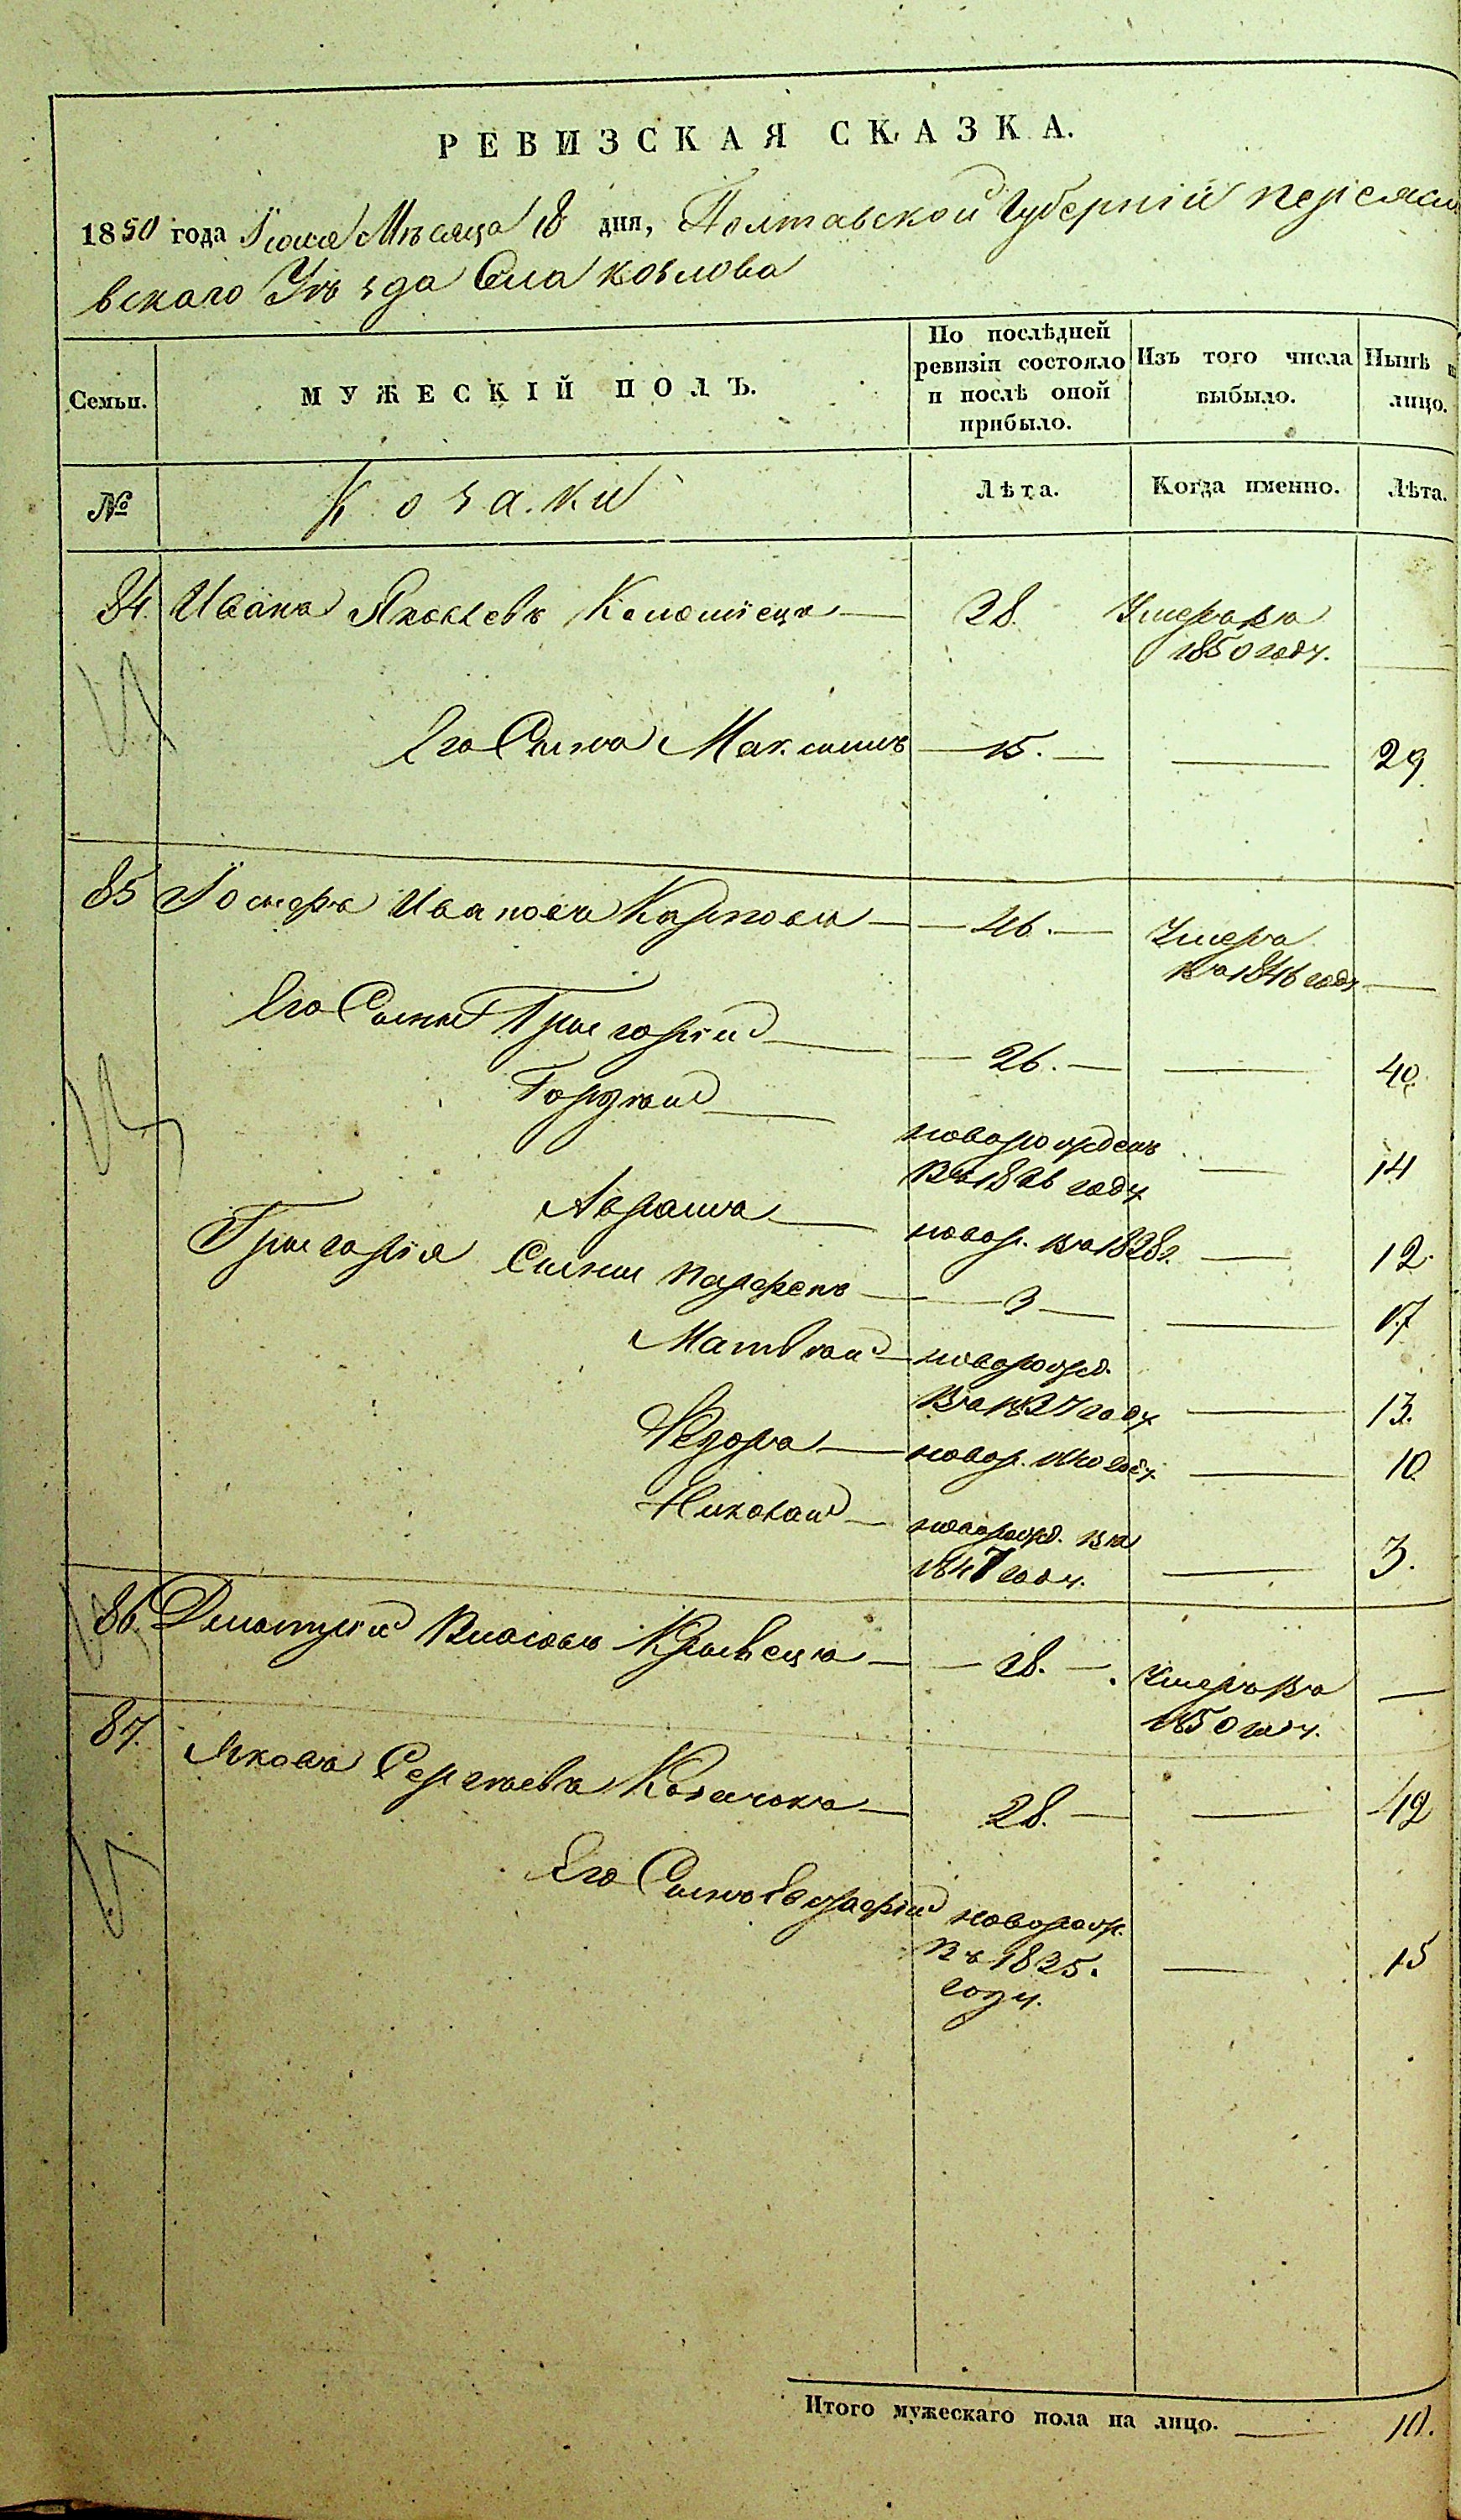 РЕВИЗСКАЯ СКАЗКА.
1850 года Іюня Мѣсяца 18 дня, Полтавской Губерніи Переясла
вскаго Уѣзда Села Козлова
Семьи.
МУЖЕСКІЙ ПОЛЪ.
По послѣдней ревизіи состояло и послѣ оной прибыло.
Изъ того числа выбыло.
Нынѣ
лицо.
№
Козаки
Лѣта.
Когда именно.
Лѣта.
84. Иванъ Яковлевъ Коломіецъ — 28. Умеръ въ
1850 году.
Его Сынъ Максимъ — 15. — — 29.
85 Іосифъ Ивановъ Карповъ — 46. — Умеръ
въ 1846 году —
Его Сыны Григорій — 26. — — 40.
Гордѣй — новорожденъ
въ 1836 году — 14
Аврамъ — новор. въ 1838 г. — 12.
Григорія Сыны Парфенъ — 3 — — 17
Матвѣй — новорожд.
въ 1837 году — 13.
Федоръ — новор. 1840 году — 10.
Николай — новорожд. въ
1847 году. — 3.
86. Дмитрій Власовъ Кривецъ — 28. — Умеръ въ —
1850 году.
87. Яковъ Сергѣевъ Козачокъ — 28. — — 42
Его Сынъ Евграфій новорож. — 15
въ 1835.
году.
Итого мужескаго пола на лицо. — 10.